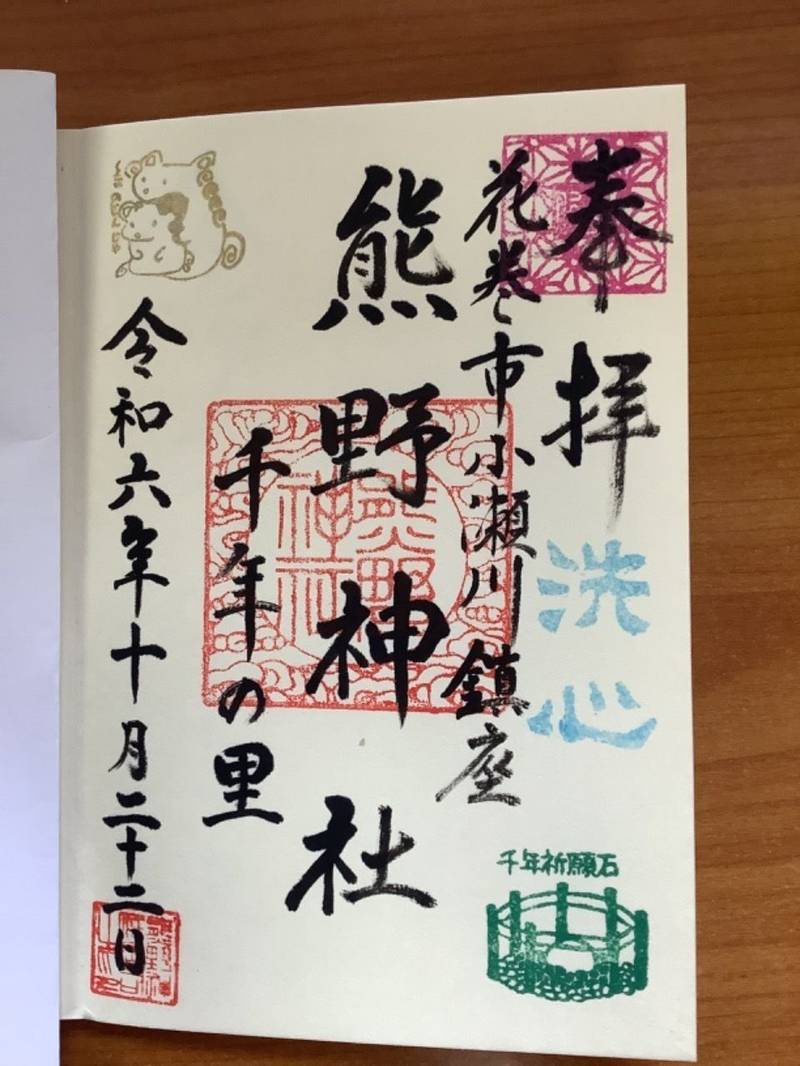 奉拝
洗心
花巻市小瀬川鎮座
熊野神社
千年の里
令和六年十月二十二日
千年祈願石